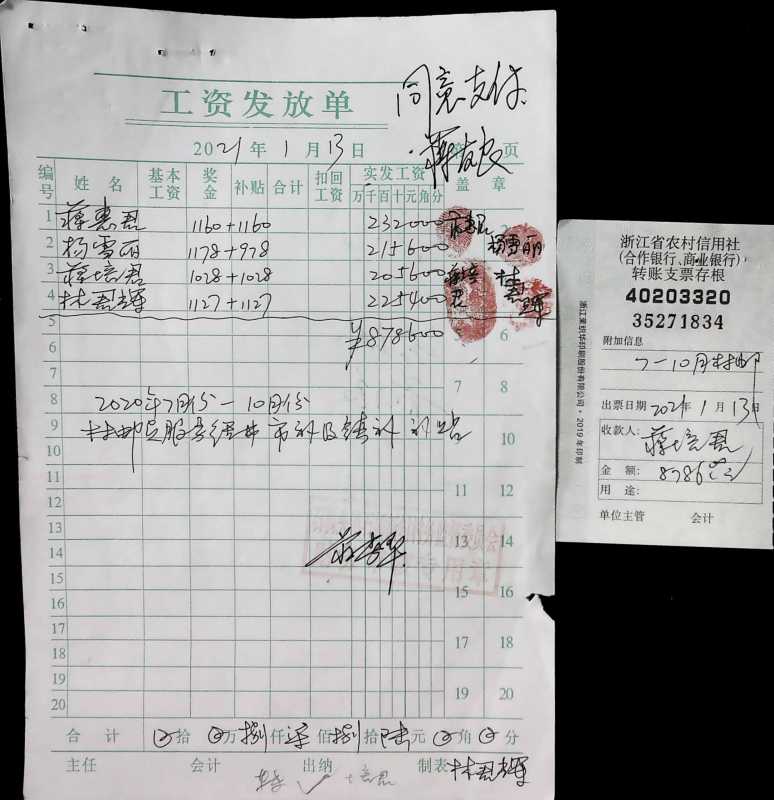 工资发放单
同意支付
2021年1月13日 第 页
编号 姓名 基本工资 奖金 补贴 合计 扣回工资 实发工资 盖章
万千百十元角分
1 蒋惠君 1160+1160 232000
2 杨雪丽 1178+978 215600 杨雪丽
3 蒋培君 1028+1028 205600 蒋培君
4 林君辉 1127+1127 225400 林君辉
5 ¥878600 6
6
7 7 8
8 2020年7月份-10月份
9 村邮员服务经费市补及镇补补贴 10
10
11 11 12
12
13 13 14
14
15 15 16
16
17 17 18
18
19 19 20
20
合计 拾 万捌仟柒佰捌拾陆元 角 分
主任 会计 出纳 制表 林君辉
浙江省农村信用社
(合作银行、商业银行)
转账支票存根
40203320
35271834
附加信息
7-10月村邮
出票日期 2021年1月13日
收款人: 蒋培君
金额: 8786
用途:
单位主管 会计